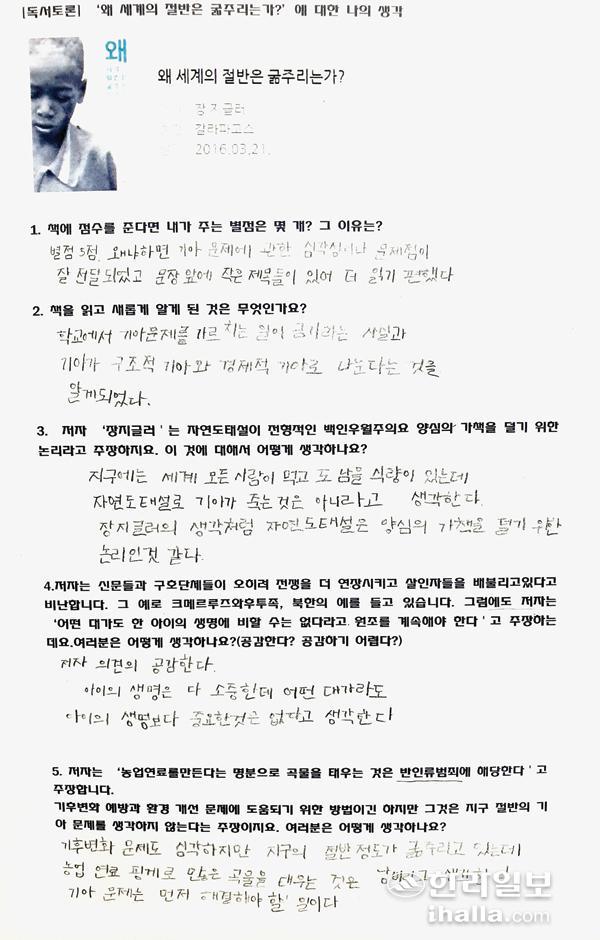 [독서토론] '왜 세계의 절반은 굶주리는가?' 에 대한 나의 생각
왜
왜 세계의 절반은 굶주리는가?
장 지글러
갈라파고스
2016.03.21.
1. 책에 점수를 준다면 내가 주는 별점은 몇 개? 그 이유는?
별점 5점. 왜냐하면 기아 문제에 관한 심각성이나 문제점이
잘 전달되었고 문장 앞에 작은 제목들이 있어 더 읽기 편했다
2. 책을 읽고 새롭게 알게 된 것은 무엇인가요?
학교에서 기아문제를 가르치는 일이 금기라는 사실과
기아가 구조적 기아와 경제적 기아로 나뉜다는 것을
알게되었다.
3. 저자 '장지글러'는 자연도태설이 전형적인 백인우월주의요 양심의 가책을 덜기 위한
논리라고 주장하지요. 이 것에 대해서 어떻게 생각하나요?
지구에는 세계 모든 사람이 먹고 또 남을 식량이 있는데
자연도태설로 기아가 죽는것은 아니라고 생각한다.
장지글러의 생각처럼 자연도태설은 양심의 가책을 덜기 위한
논리인것 같다.
4.저자는 신문들과 구호단체들이 오히려 전쟁을 더 연장시키고 살인자들을 배불리고있다고
비난합니다. 그 예로 크메르루즈와후투족, 북한의 예를 들고 있습니다. 그럼에도 저자는
'어떤 대가도 한 아이의 생명에 비할 수는 없다라고 원조를 계속해야 한다'고 주장하는
데요.여러분은 어떻게 생각하나요?(공감한다? 공감하기 어렵다?)
저자 의견의 공감한다.
아이의 생명은 다 소중한데 어떤 대가라도
아이의 생명보다 중요한것은 없다고 생각한다
5. 저자는 '농업연료를만든다는 명분으로 곡물을 태우는 것은 반인류범죄에 해당한다'고
주장합니다.
기후변화 예방과 환경 개선 문제에 도움되기 위한 방법이긴 하지만 그것은 지구 절반의 기
아 문제를 생각하지 않는다는 주장이지요. 여러분은 어떻게 생각하나요?
기후변화 문제도 심각하지만 지구의 절반정도가 굶주리고 있는데
농업 연료 핑계로 많은 곡물을 태우는 것은
기아 문제는 먼저 해결해야 할 일이다
한라일보
ihalla.com